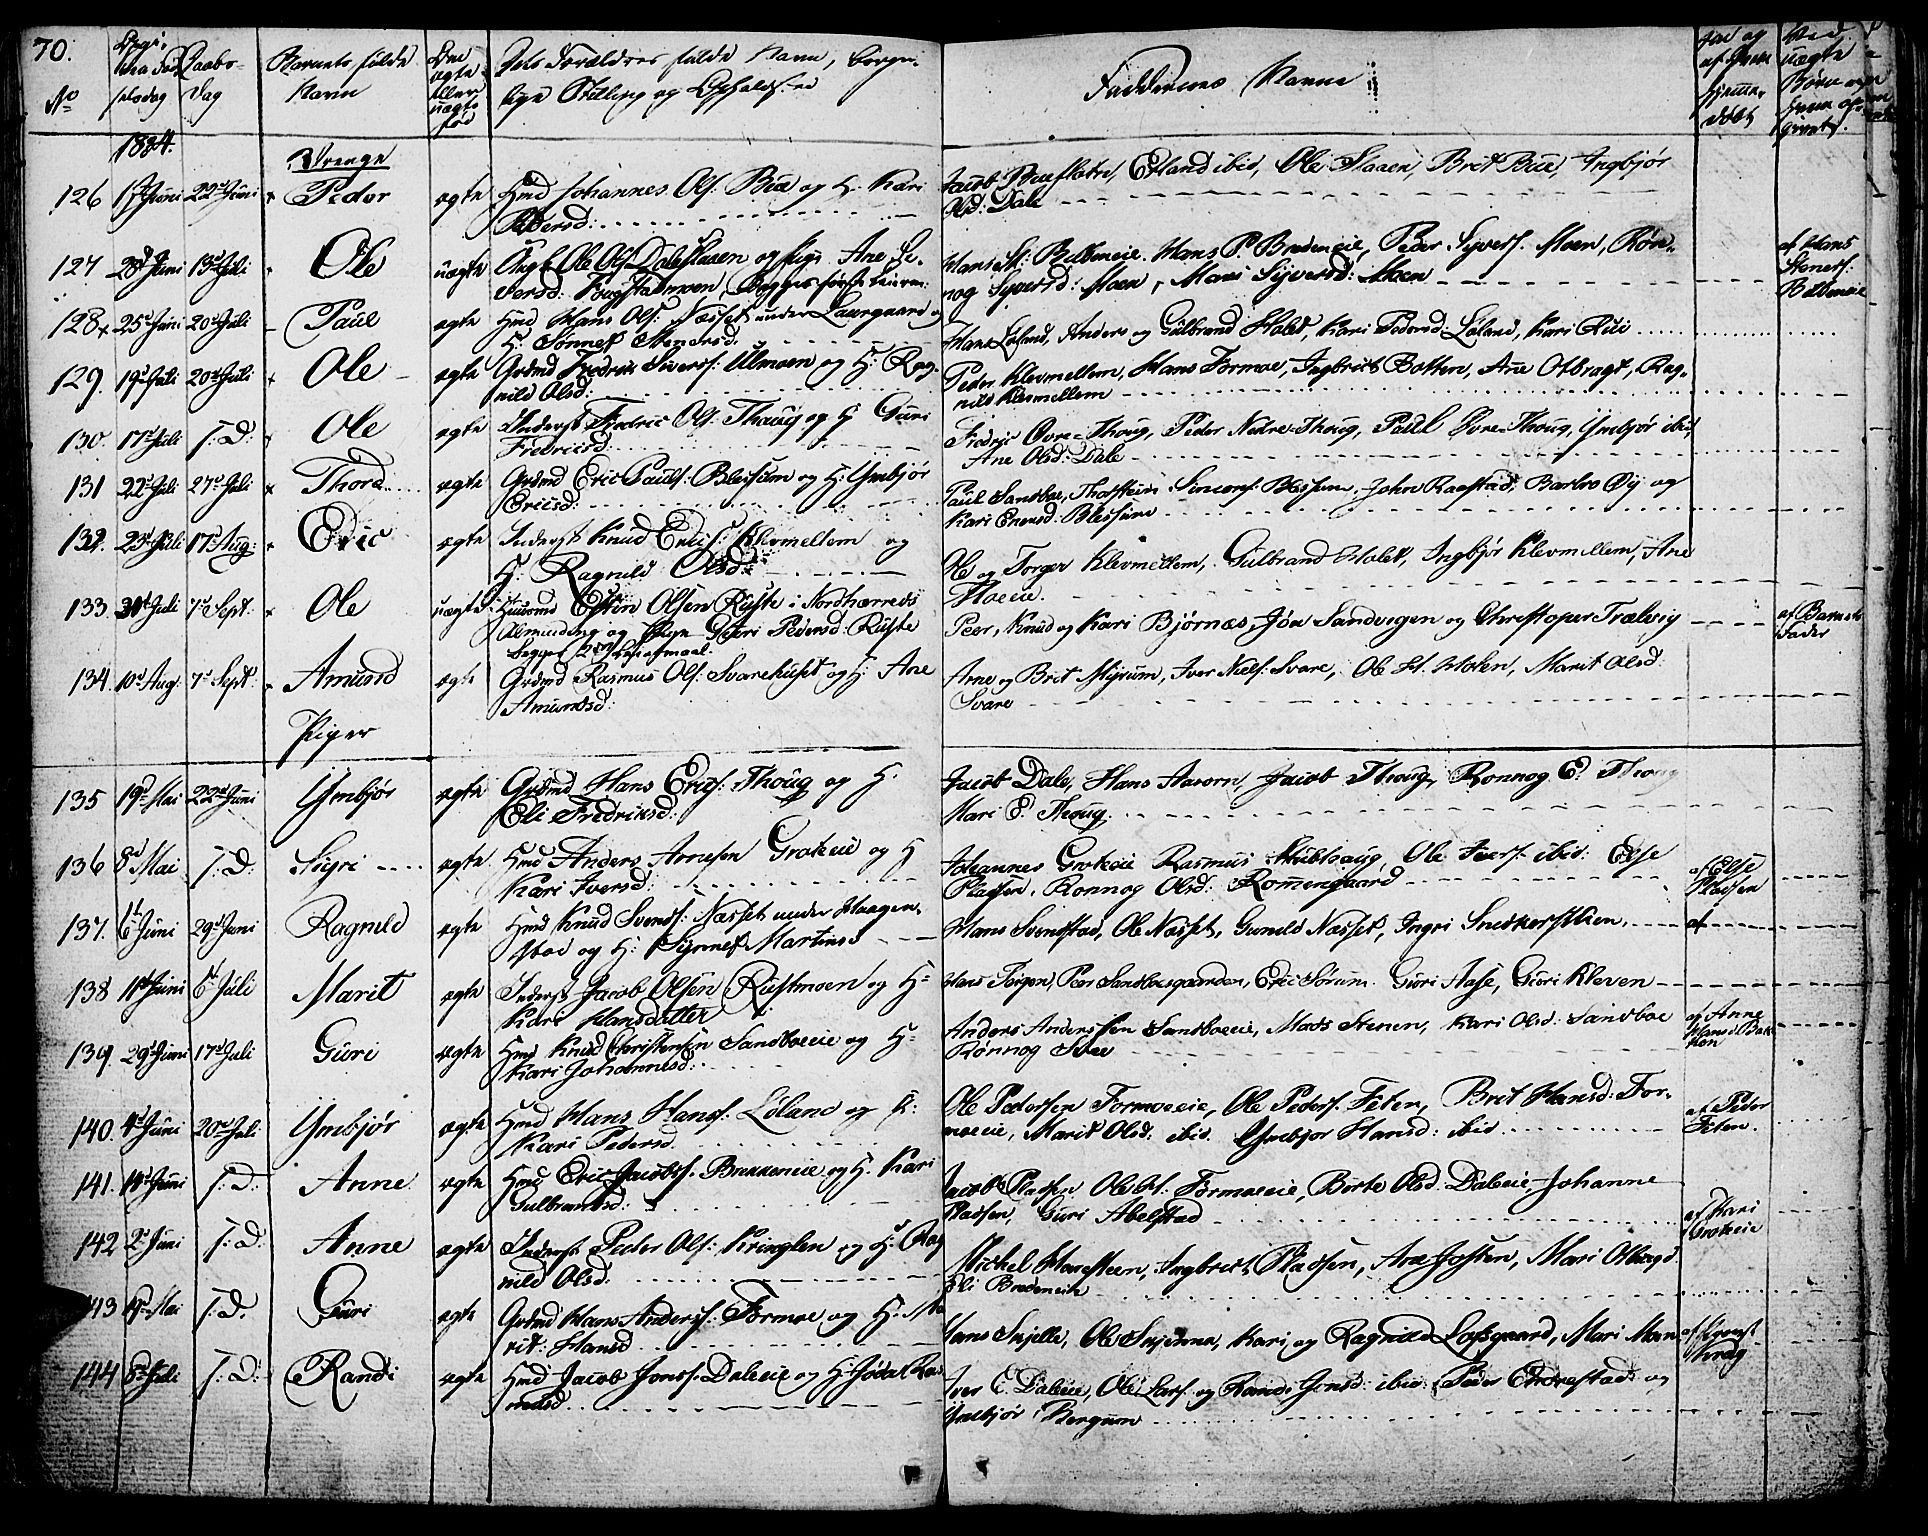 70.
No
Daabs-
dag
Barnets fulde
Navn
ægte
eller
uægte
fød
Dets Forældres fulde Navn, borger-
lige Stilling og Opholdssted
Faddernes Navne
1824.
Drenge
126 17d Juni 22d Juni Peder ægte Hmd Johannes Ols: Bue og H: Kari
Pedersd:
Jacob Bueflaten, Erland ibid, Ole Slaaen, Brit Bue, Ingbjør
Olsd: Dale
127 28d Juni 13d Juli Ole uægte Ungk. Ole Ols: Dale og Pige Ane
Begges første
Hans P. Bredeneie, Peder Syvers: Moen, Røn-
nog Syversd: Moen, Mari Syversd: Moen
af Hans
Steners:
128 25d Juni 20d Juli Paul ægte Hmd Hans Ols: Næsset under Laurgaard og
H. Sønnet Stenersd.
Hans Løland, Anders og Gulbrand Holet, Kari Pedersd Løland, Kari Rui
129. 19d Juli 20d Juli Ole ægte Grdmd Fredric Sivers: Ulmoen og H: Rag-
nild Olsd:
Peder Klevmellem, Hans Formoe, Ingbrict Botten, Ane Otbragt, Rag-
nild Klevmellem
130. 17d Juli T: D: Ole ægte Inderst Fredric Ols: Thoug og H Guri
Fredricsd:
Fredric Øvre-Thoug, Peder Nedre-Thoug, Paul Øvre-Thoug, Ymbjør ibid,
Ane Olsd: Dale
131 22d Juli 27d Juli Thord ægte Grdmd Eric Pauls: Blessum og H: Ymbjør
Ericsd:
Paul Sandboe, Thosstein Simons: Blessum, John Raastad, Barbro Øy og
Kari Enersd: Blessum
132. 23d Juli 17d Aug: Eric ægte Inderst Knud Erics: Klevmellem og
H: Ragnild Olsd:
Ole og Torger Klevmellem, Gulbrand Holet, Ingbjør Klevmellem, Ane
Moeeie.
133. 31d Juli 7d Sept: Ole uægte Huusmd Esten Olsen Ruste i Nordherreds
Alminding og Pige Guri Pedersd: Ruste
begges 2det Leiermaal.
Peer, Knud og Kari Bjørnæs, Jón Sandvigen og Christopher Trælvig
af Barnets
Fader
134. 10d Aug: 7d Sept. Amund ægte Grdmd Rasmus Ols: Svarehuset og H: Ane
Amundsd:
Arne og Brit Myrum, Iver Niels: Svare, Ole H. Holen, Marit Olsd:
Svare
Piger
135 19d Mai 22d Juni Ymbjør ægte Grdmd Hans Erics: Thoug og H.
Eli Fredriksd:
Jacob Dale, Hans Aaorn, Jacob Thoug, Ronnog E. Thoug
Mari E. Thoug.
136 8d Mai T: D: Sigri ægte Hmd Anders Arnesen Groteeie og H
Kari Iversd:
Johannes Groteeie Rasmus Ole Ivers: ibid: Else
Pladsen, Ronnog Olsd: Romengaard
af Else
Pladsen
137. 6d Juni 29d Juni Ragnild ægte Hmd Knud Svends: Næsset under Haagen-
stad og H: Synnet Martinsd
Hans Svendstad, Ole Næsset, Gunild Næsset, Ingri Snedkerstuen,
138 11d Juni 6d Juli Marit ægte Inderst Jacob Olsen Rustmoen og H:
Kari Hansdatter
Hans Jørgen, Peer Sandboesgaarden, Eric Sørum. Guri Aase, Guri Kleven
139. 29d Juni 17d Juli Guri ægte Hmd Knud Christensen Sandboeeie og H:
Kari Johannesd:
Anders Anderssen Sandboeeie, Mads Stenen, Kari Olsd: Sandboe
Rønnog Svee
af Anne
Hansd: Bak-
ken
140. 4d Juni 20d Juli Ymbjør ægte Hmd Hans Hans: Løland og H:
Kari Pedersd
Ole Pedersen Formoeeie, Ole Peders: Feten, Brit Hansd: For-
moeeie, Marit Olsd: ibid. Ymbjør Hansd: ibid
af Peder
Feten.
141. 18d Juni T: D: Anne ægte Hmd Eric Jacobs: Brekkeneie og H. Kari
Gulbrandsd:
Jacob Pladsen Ole H. Formoeeie, Børte Olsd: Daleeie, Johanne
Pladsen, Guri Abelstad
af Kari
Groteeie
142 2d Juni T: D: Anne ægte Inderst Peder Ols: Kringlen og H: Rag
nild Olsd:
Michel Haresteen, Ingbrict Pladsen, Ane Josten, Mari Otbragt
Eli Bredeneie
143 19d Mai T: D. Guri ægte Grdmd Hans Anders: Formoe og H: Ma
rit Hansd
Hans Sujelle, Ole Kari og Ragnild Lofsgaard, Mari Moen
144 8d Juli T: D: Randi ægte Hmd Jacob Jons: Daleeie og H: Jøda Ras
musd.
Iver E Daleeie, Ole Lars: og Rand: Jonsd: ibid: Peder Endrestad og
Ymbjør Bergum